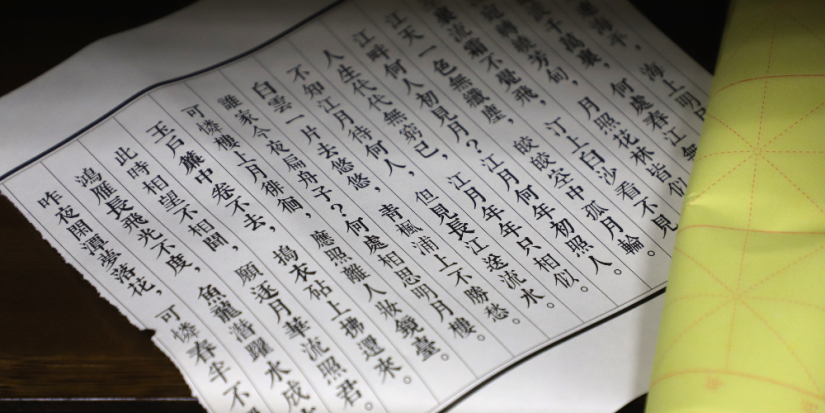 海平，海上明月
千萬裏，何處春江無
宛轉繞芳甸，月照花林皆似
裏流霜不覺飛，汀上白沙看不見
江天一色無纖塵，皎皎空中孤月輪。
江畔何人初見月？江月何年初照人。
人生代代無窮已，江月年年只相似。
不知江月待何人，但見長江送流水。
白雲一片去悠悠，青楓浦上不勝愁。
誰家今夜扁舟子？何處相思明月樓。
可憐樓上月徘徊，應照離人妝鏡臺。
玉戶簾中卷不去，搗衣砧上拂還來。
此時相望不相聞，願逐月華流照君。
鴻雁長飛光不度，魚龍潛躍水成
昨夜閑潭夢落花，可憐春半不